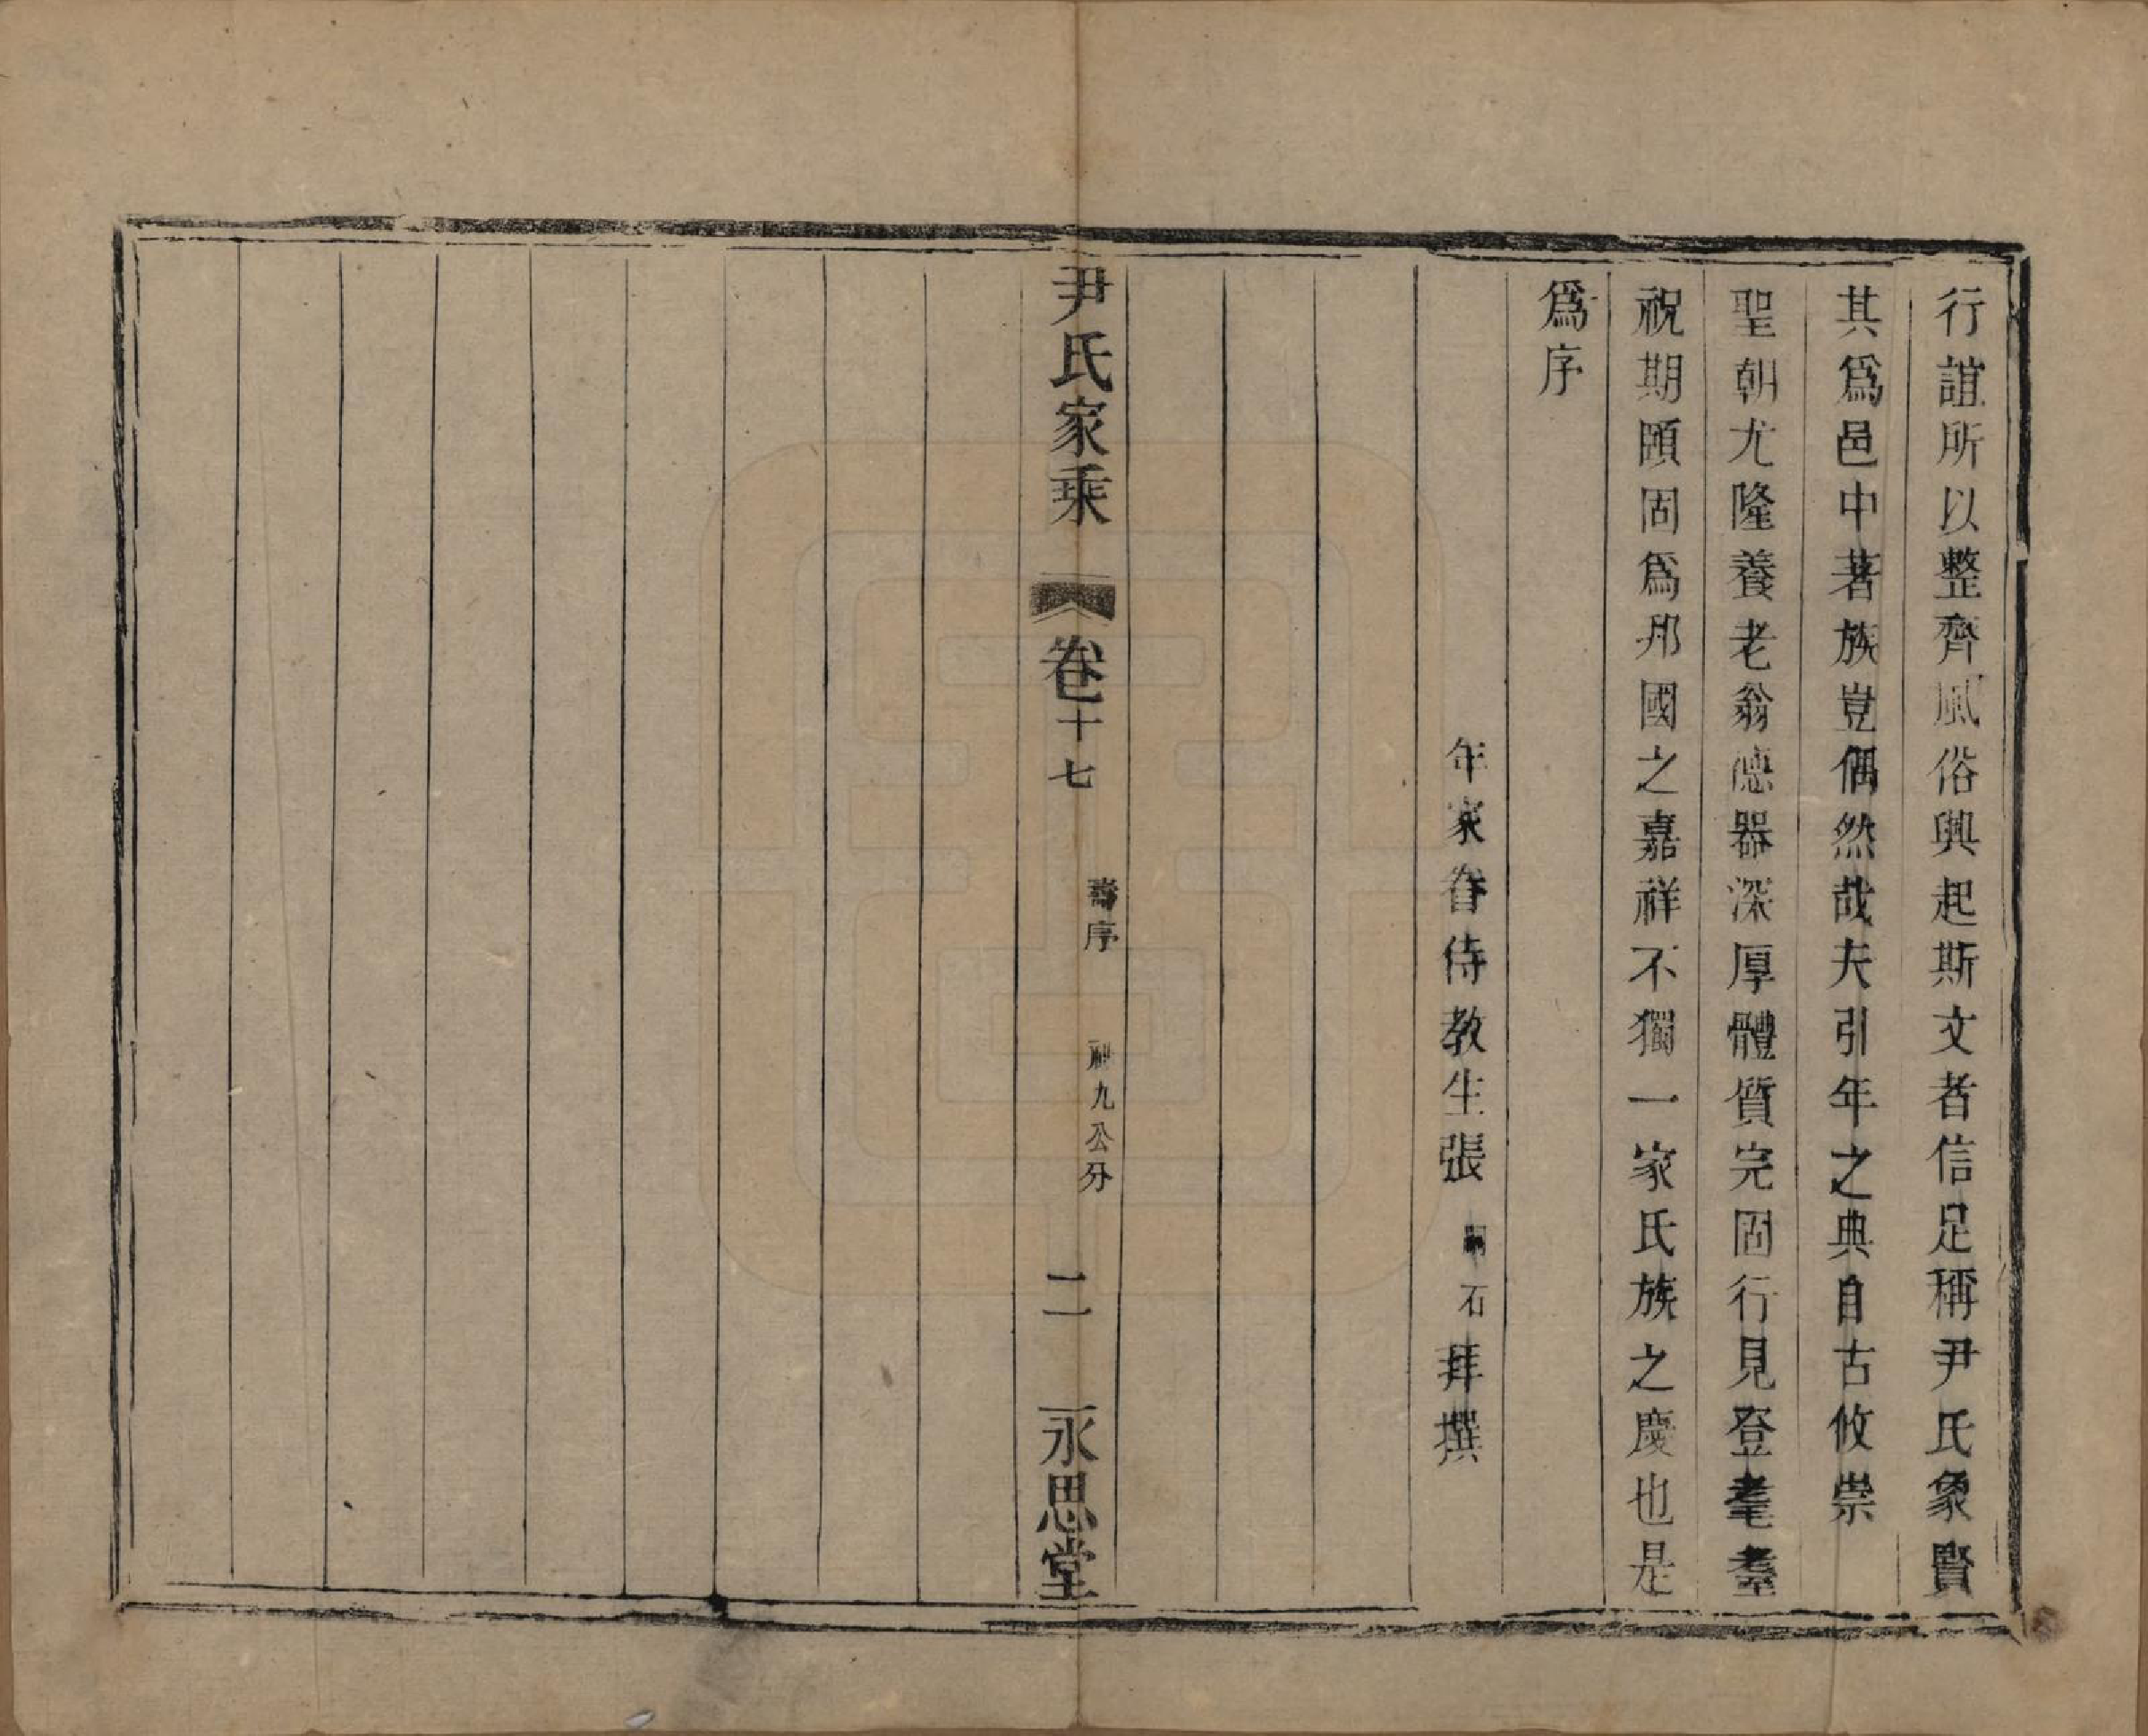 行誼所以整齊風俗興起斯文者信足稱尹氏象賢
其爲邑中著族豈偶然哉夫引年之典自古攸崇
聖朝尤隆養老翁德器深厚體質完固行見登耄耋
祝期頤固爲邦國之嘉祥不獨一家氏族之慶也是
爲序
年家眷侍教生張石拜撰
尹氏家乘 卷十七 壽序 九公分 二 永思堂